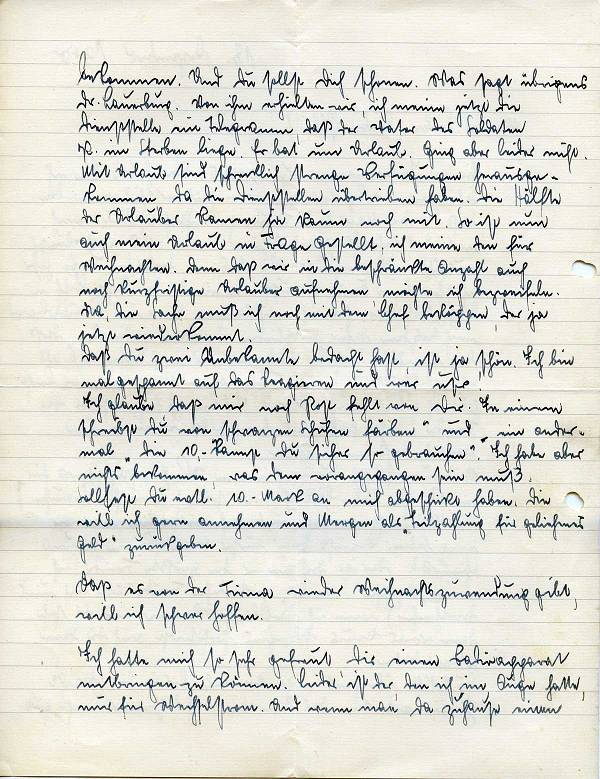 bekommen. Und Du sollst Dich schonen. Was sagt übrigens
Dr. Lauerburg. Von ihm erhielten wir, ich meine jetzt die
Dienststelle ein Telegramm daß der Vater des Soldaten
R. im Sterben liege. Er bat um Urlaub. Ging aber leider nicht.
Mit Urlaub sind schrecklich strenge Verfügungen herausge-
kommen da die Dienststellen übertrieben haben. Die Hälfte
der Urlauber kamen ja kaum noch mit. So ist nun
auch mein Urlaub in Frage gestellt, ich meine den für
Weihnachten. Denn daß wir in die beschränkte Anzahl auch
noch kurzfristige Urlauber aufnehmen, möchte ich bezweifeln.
Na, die Sache muß ich noch mit dem Chef beklöppen, der ja
jetzt wiederkommt.
Daß Du zwei Unbekannte bedacht hast, ist ja schön. Ich bin
mal gespannt auf das reagieren und wer usw.
Ich glaube, daß mir noch Post fehlt von Dir. In einem
schreibst Du von schwarzen Schuhen färben" und ein ander-
mal "die 10,- kannst Du sicher so gebrauchen". Ich habe aber
nichts bekommen, was dem vorangegangen sein muß.
Solltest Du evtl. 10.- Mark an mich abgeschickt haben, die
will ich gern annehmen und Morgen als "Teilzahlung für geliehenes
Geld" zurückgeben.
Daß es von der Firma wieder Weihnachtszuwendung gibt,
will ich schwer hoffen.
Ich hatte mich so sehr gefreut Dir einen Radioapparat
mitbringen zu können. Leider ist der, den ich im Auge hatte,
nur für Wechselstrom. Und wenn man da zuhause einen